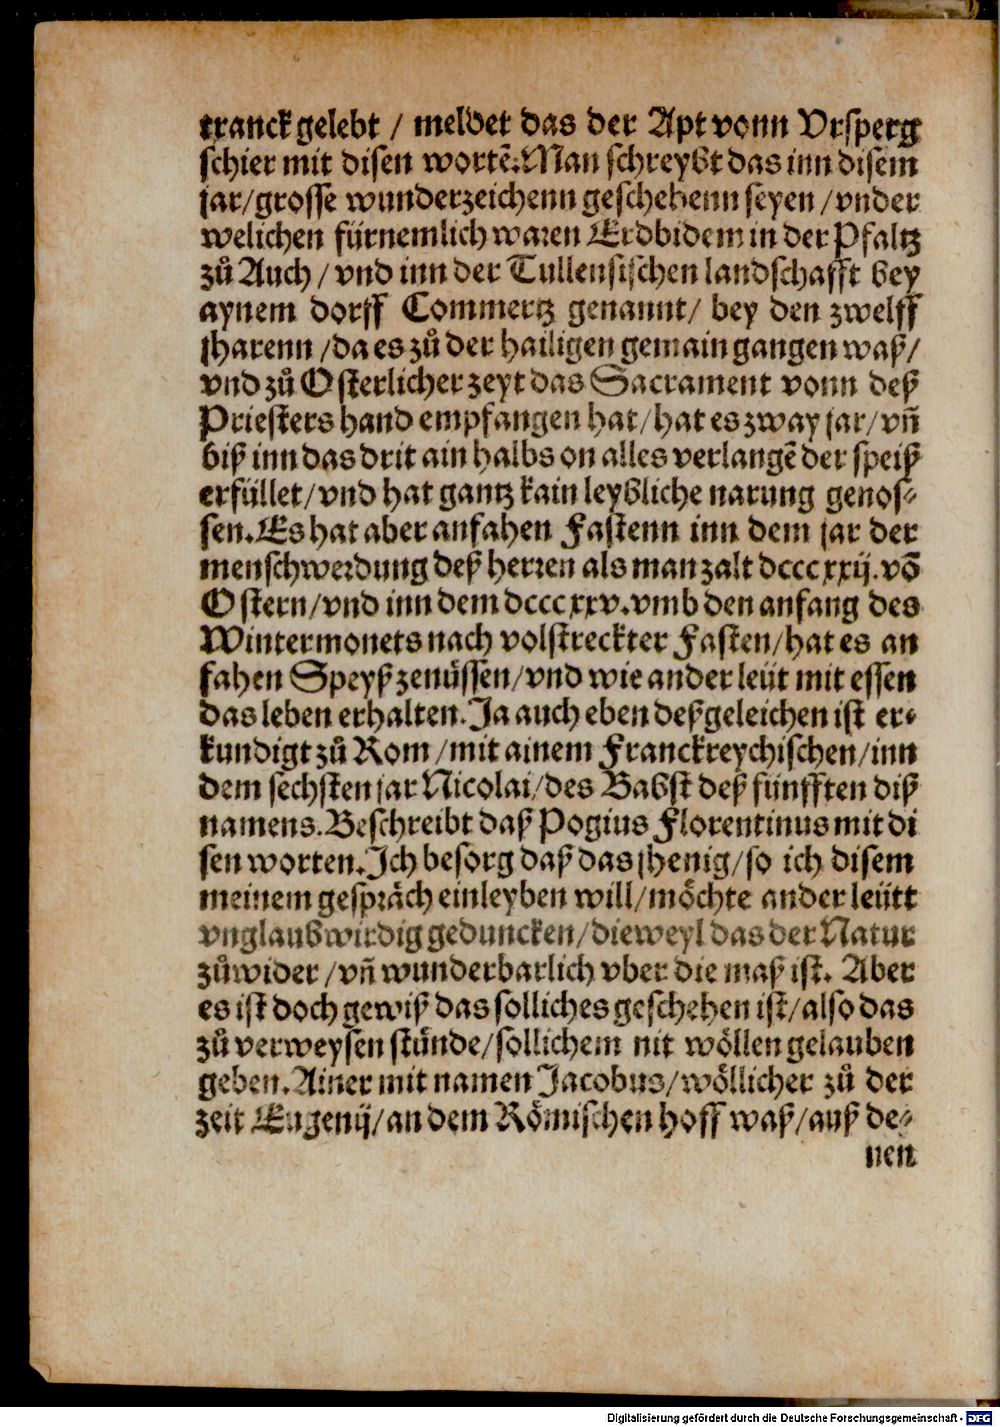 tranck gelebt / meldet das der Apt vonn Vrsperg
schier mit disen wortẽ. Man schreybt das inn disem
jar/grosse wunderzeichenn geschehenn seyen /vnder
welichen fürnemlich waren Erdbidem in der Pfaltz
zů Auch / vnd inn der Tullensischen landschafft bey
aynem dorff Commertz genannt/ bey den zwelff
jharenn /da es zů der hailigen gemain gangen waß/
vnd zů Osterlicher zeyt das Sacrament vonn deß
Priesters hand empfangen hat/hat es zway jar/vñ
biß inn das drit ain halbs on alles verlangẽ der speiß
erfüllet/vnd hat gantz kain leybliche narung genos⸗
sen. Es hat aber anfahen Fastenn inn dem jar der
menschwerdung deß herren als man zalt dcccxxij. võ
Ostern/vnd inn dem dcccxxv. vmb den anfang des
Wintermonets nach volstreckter Fasten/hat es an
fahen Speyß zenůssen/vnd wie ander leüt mit essen
das leben erhalten. Ja auch eben deßgeleichen ist er⸗
kundigt zů Rom /mit ainem Franckreychischen/inn
dem sechsten jar Nicolai/des Babst deß fünfften diß
namens. Beschreibt daß Pogius Florentinus mit di
sen worten. Ich besorg daß das jhenig/so ich disem
meinem gespräch einleyben will/möchte ander leütt
vnglaubwirdig geduncken/dieweyl das der Natur
zůwider /vñ wunderbarlich vber die maß ist. Aber
es ist doch gewiß das solliches geschehen ist/also das
zů verweysen stünde/sollichem nit wöllen gelauben
geben. Ainer mit namen Jacobus/wöllicher zů der
zeit Eugenij/an dem Römischen hoff waß/auß de⸗
nen
Digitalisierung gefördert durch die Deutsche Forschungsgemeinschaft - DFG